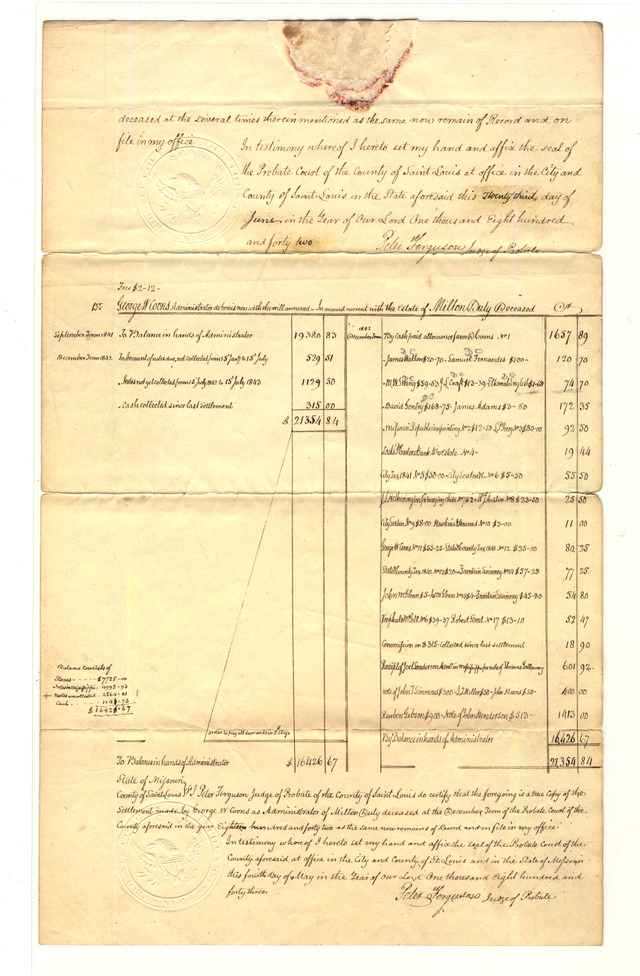 deceased at the several times therein mentioned as the same now remain of Record and on
file in my office
In testimony whereof I hereto set my hand and affix the seal of
the Probate Court of the County of Saint Louis at office in the City and
County of Saint Louis in the State aforesaid this Twenty third day of
June in the Year of Our Lord One thousand Eight hundred
and forty two
Peter Ferguson Judge of Probate
Fees $2-12-
Dr George W Coons Administrator debonis non with the will annexed In account current with the Estate of Milton Duty Deceased Cr
September Term 1841 To Balance in hands of Administrator 19380 83
December Term 1842 To Amount of notes due, not collected from 15 July to 15 July 529 51
Notes not yet collected from 15 July 1842 to 15 July 1843 1129 50
Cash collected since last settlement 315 00
$ 21354 84
1842 December Term By Cash paid allowance favor G W Coons No 1 1657 89
James Milton $20-70- Samuel Fernandes $100- 120 70
$59-53 J L Craft $13-39 $1-68 74 70
David Gentry $168-75- James Adams $3-60 172 35
Missouri Republican printing No 2 $12-50 No 3 $80-00 92 50
No 4- 19 44
City Tax 1841 No 5 $50-00- City Sexton No 6 $5-50 55 50
No 7 $2- No 8 $23-50 25 50
City Sexton No 9 $8-00 No 10 $3-00 11 00
George W Coons No 11 $55-25- State & County Tax 1841 No 12 $25-00 80 25
State & County Tax 1842 No 13 $20- Fountain Swinney No 14 $57-25 77 25
John McGlenn $5- $4- Fountain Swinney $45-80 54 80
No 16 $39-37 Robert No 17 $13-10 52 47
Commission on $315- Collected since last settlement 18 90
Receipt of Joel Sanderson in Mississippi for note of Thomas Galloway 601 92
Note of John T Simmons $300- $50- John Harris $50- 400 00
Reuben Gibson $900- Note of John Henderson $513- 1413 00
By Balance in hands of Administrator 16426 67
21,354 84
Balance Consists of
Slaves $7725-00
Notes in Mississippi 4995-93
Notes uncollected 2564-01
Cash
$16426-67
Order to pay all demands in 5th class
To Balance in hands of Administrator $16426 67
State of Missouri
County of Saint Louis I Peter Ferguson Judge of Probate of the County of Saint Louis do certify that the foregoing is a true Copy of the
Settlement made by George W Coons as Administrator of Milton Duty deceased at the December Term of the Probate Court of the
County aforesaid in the year Eighteen hundred and forty two as the same now remains of Record and on file in my office
In testimony whereof I hereto set my hand and affix the seal of the Probate Court of the
County aforesaid at office in the City and County of St Louis and in the State of Missouri
this fourth day of May in the Year of Our Lord One thousand Eight hundred and
forty three
Peter Ferguson Judge of Probate